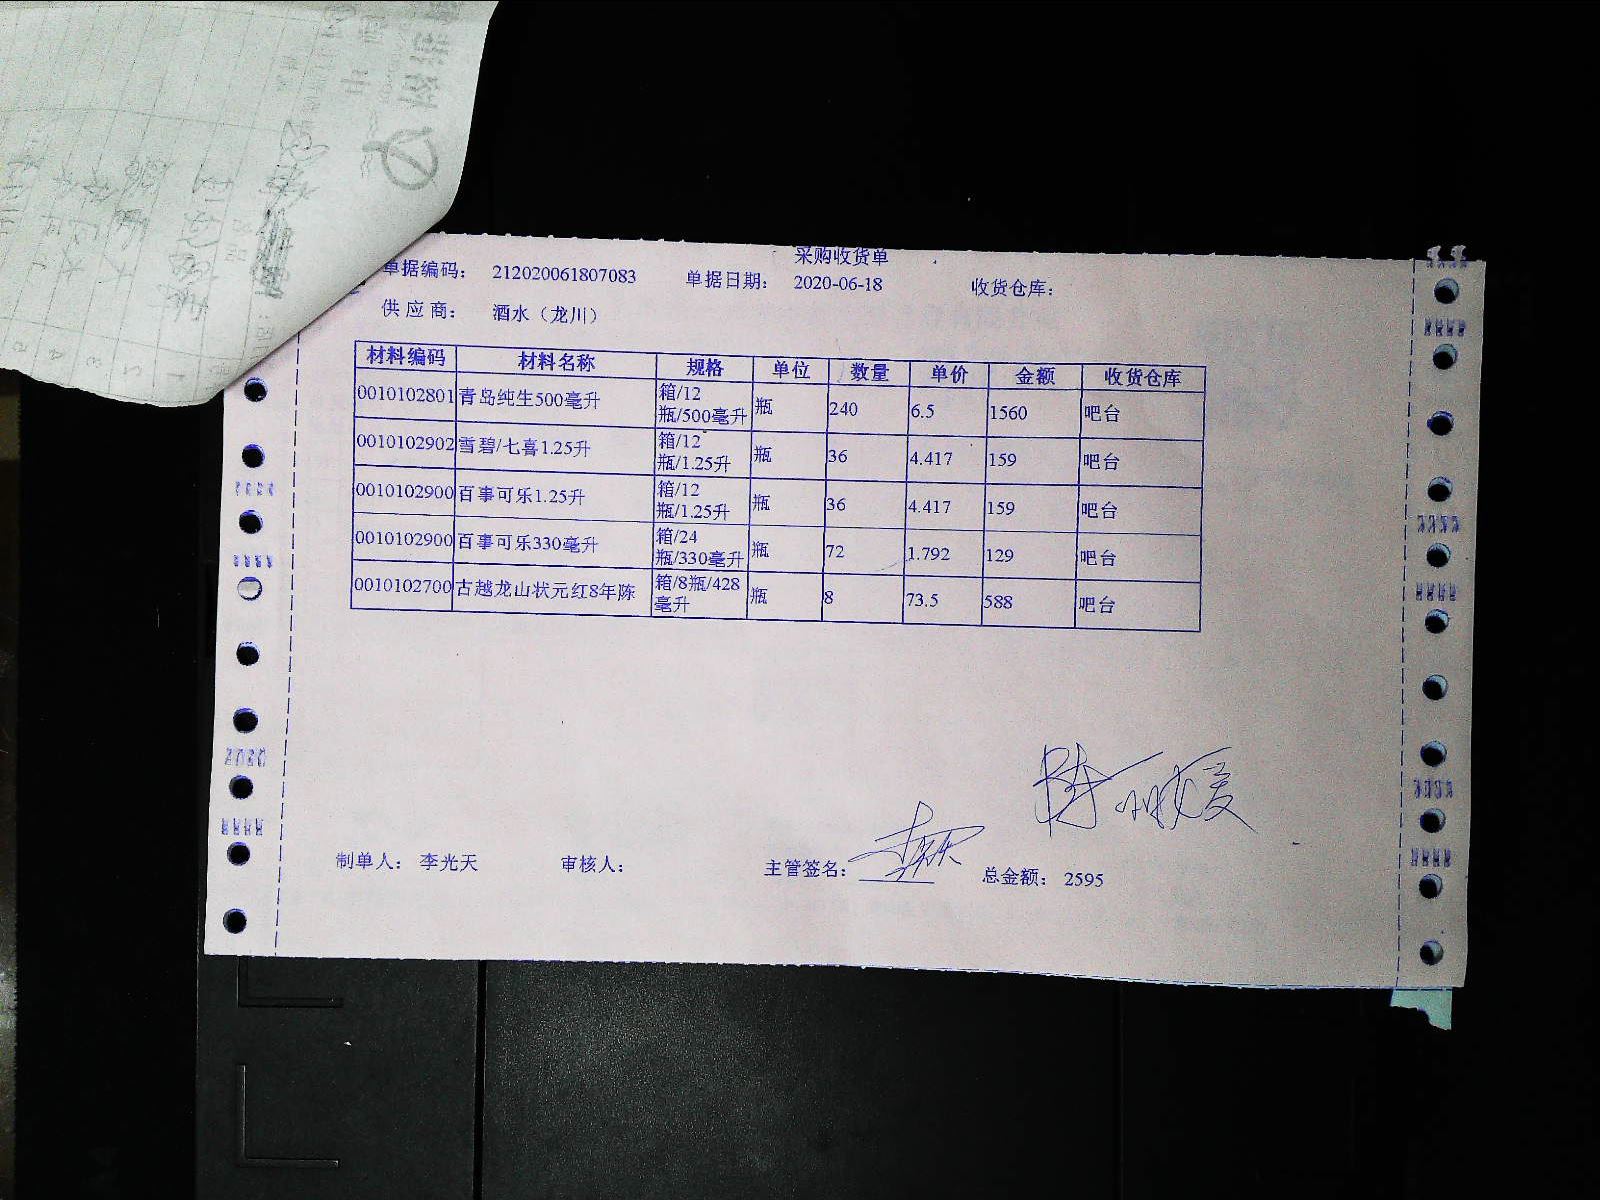 采购收货单
单据编码： 212020061807083 单据日期： 2020-06-18 收货仓库：
供应商： 酒水（龙川）
材料编码 材料名称 规格 单位 数量 单价 金额 收货仓库
0010102801 青岛纯生500毫升 箱/12瓶/500毫升 瓶 240 6.5 1560 吧台
0010102902 雪碧/七喜1.25升 箱/12瓶/1.25升 瓶 36 4.417 159 吧台
0010102900 百事可乐1.25升 箱/12瓶/1.25升 瓶 36 4.417 159 吧台
0010102900 百事可乐330毫升 箱/24瓶/330毫升 瓶 72 1.792 129 吧台
0010102700 古越龙山状元红8年陈 箱/8瓶/428毫升 瓶 8 73.5 588 吧台
制单人： 李光天 审核人： 主管签名： 总金额： 2595